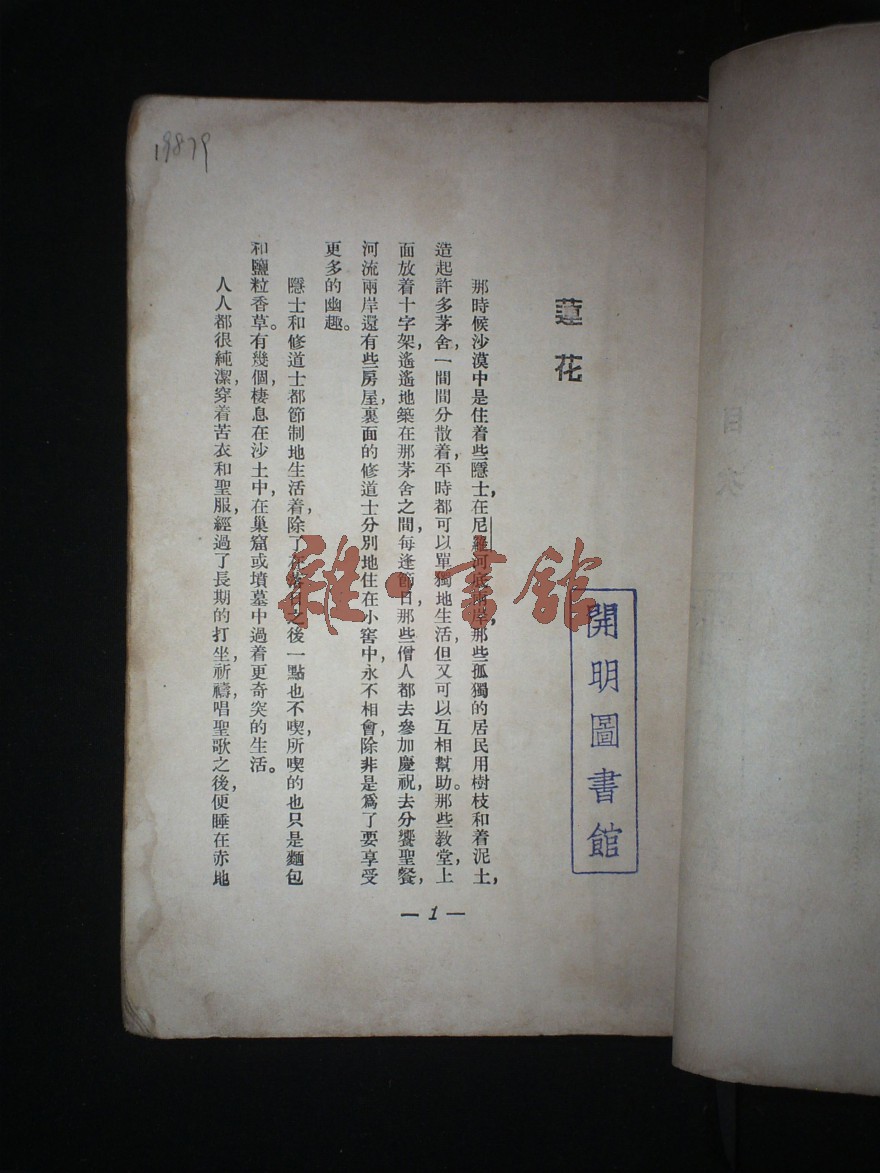 蓮花
那時候沙漠中是住着些隱士，在尼羅河底兩岸，那些孤獨的居民用樹枝和着泥土，
造起許多茅舍，一間間分散着，平時都可以單獨地生活，但又可以互相幫助。那些教堂，上
面放着十字架，遙遙地築在那茅舍之間，每逢節日，那些僧人都去參加慶祝，去分饗聖餐，
河流兩岸還有些房屋，裏面的修道士分別地住在小窖中，永不相會，除非是爲了要享受
更多的幽趣。
隱士和修道士都節制地生活着，除了在落日之後一點也不喫，所喫的也只是麵包
和鹽粒香草。有幾個，棲息在沙土中，在巢窟或墳墓中過着更奇突的生活。
人人都很純潔，穿着苦衣和聖服，經過了長期的打坐，祈禱，唱聖歌之後，便睡在赤地
— 1 —
開明圖書館
19879
雜·書館
目次